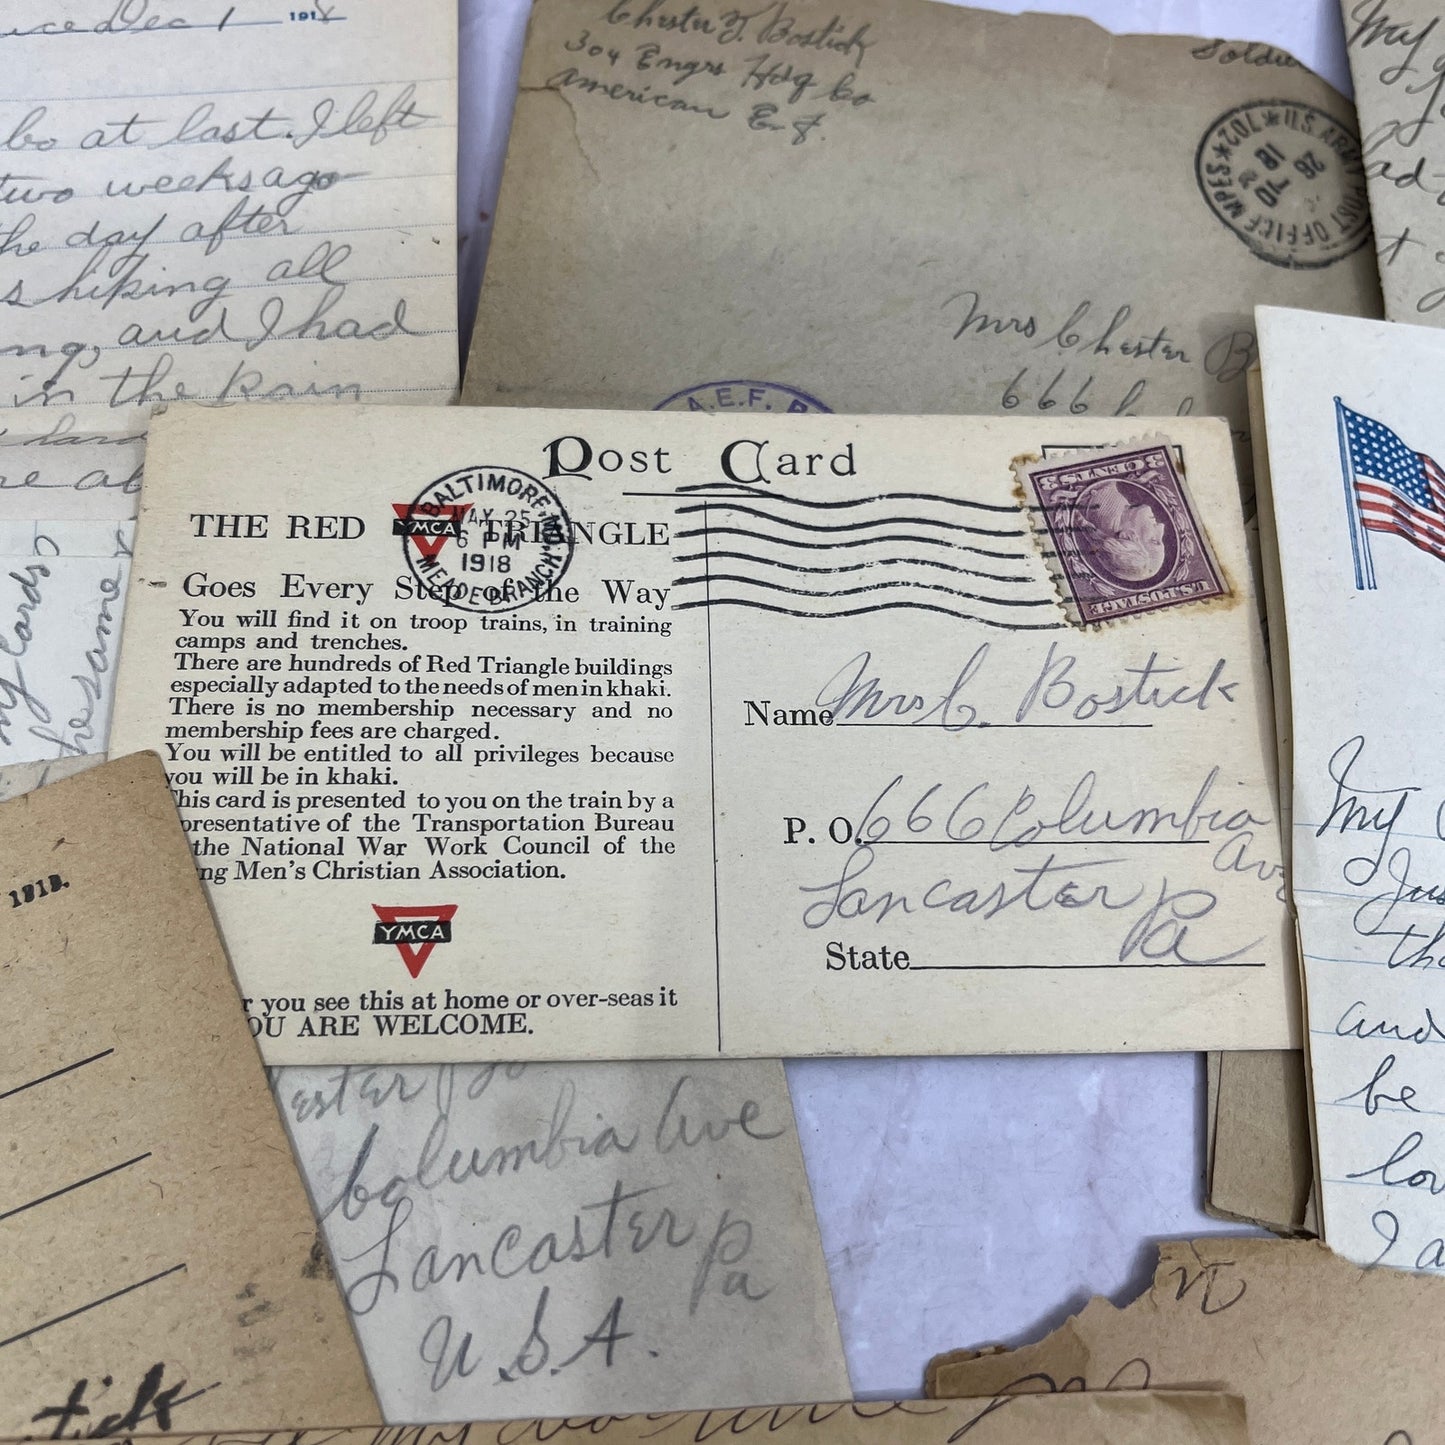 Dec 1 1918
Co at last. I left
two weeks ago
the day after
hiking all
and I had
in the Rain
Chester T. Bostick
304 Engrs Hdq Co
American E. F.
Soldier
U.S. ARMY POST OFFICE MPES ★ 702 ★
Mrs Chester B
666
A.E.F.
My
my cards
the same
Post Card
THE RED YMCA TRIANGLE
BALTIMORE, MD.
MAY 25
6 PM
1918
MEADE BRANCH
3 CENTS 3
U.S. POSTAGE
Goes Every Step of the Way
You will find it on troop trains, in training
camps and trenches.
There are hundreds of Red Triangle buildings
especially adapted to the needs of men in khaki.
There is no membership necessary and no
membership fees are charged.
You will be entitled to all privileges because
you will be in khaki.
This card is presented to you on the train by a
presentative of the Transportation Bureau
the National War Work Council of the
ng Men's Christian Association.
YMCA
r you see this at home or over-seas it
OU ARE WELCOME.
Name Mrs C. Bostick
P. O. 666 Columbia
Ave
Lancaster Pa
State
1918.
tick
ester
Columbia Ave
Lancaster Pa
U.S.A.
My
Jus
tha
and
be
lov
I a
My